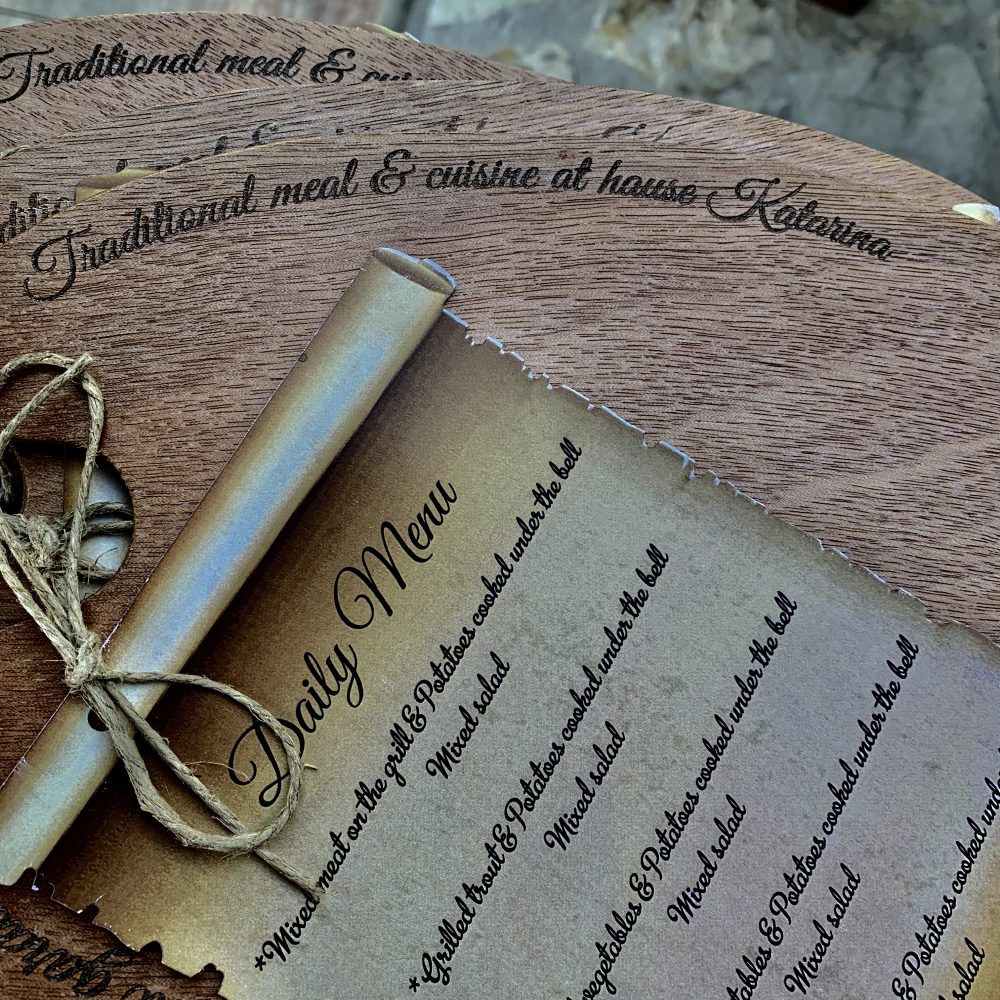 Traditional meal &
Traditional meal & cuisine at hause Katarina
Daily Menu
*Mixed meat on the grill & Potatoes cooked under the bell
Mixed salad
*Grilled trout & Potatoes cooked under the bell
Mixed salad
vegetables & Potatoes cooked under the bell
Mixed salad
& Potatoes cooked under the bell
Mixed salad
& Potatoes cooked
salad